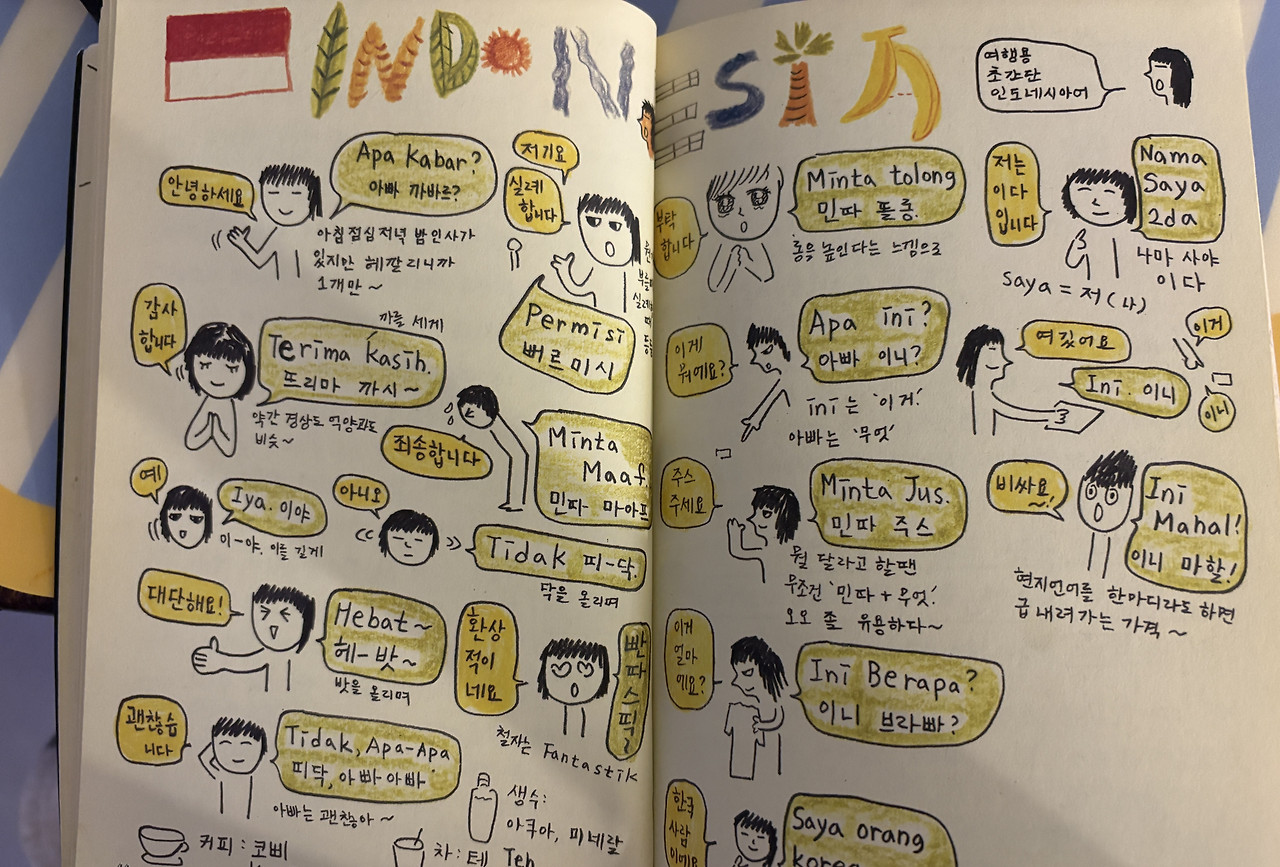 INDONESIA
여행용
초간단
인도네시아어
안녕하세요
Apa Kabar?
아빠 까바르?
아침 점심 저녁 밤 인사가
있지만 헤깔리니까
1개만~
저기요
실례
합니다
Permisi
뻐르미시
감사
합니다
까를 세게
Terima Kasih.
뜨리마 까시~
약간 경상도 억양과도
비슷~
죄송합니다
Minta
Maaf.
민따 마아프
예
Iya. 이야
이-야. 이를 길게
아니오
Tidak 띠-닥.
닥을 올리며
대단해요!
Hebat~
헤-밧~
밧을 올리며
환상
적이
네요
빤따스띡!
철자는 Fantastik
괜찮습
니다
Tidak, Apa-Apa
띠닥, 아빠 아빠
아빠는 괜찮아~
생수:
아쿠아, 미네랄
커피 : 코삐
차 : 테 Teh
부탁
합니다
Minta tolong
민따 똘롱.
롱을 높인다는 느낌으로
저는
이다
입니다
Nama
Saya
2da
나마 사야
이다
Saya = 저(나)
이게
뭐에요?
Apa ini?
아빠 이니?
ini 는 '이거!'
아빠는 '무엇'
여깄어요
Ini. 이니
이거
이니
주스
주세요
Minta Jus.
민따 주스
뭘 달라고 할땐
무조건 '민따 + 무엇'.
오오 졸 유용하다~
비싸요!
Ini
Mahal!
이니 마할!
현지언어를 한마디라도 하면
급 내려가는 가격~
이거
얼마
에요?
Ini Berapa?
이니 브라빠?
한국
사람
이에요
Saya orang
korea